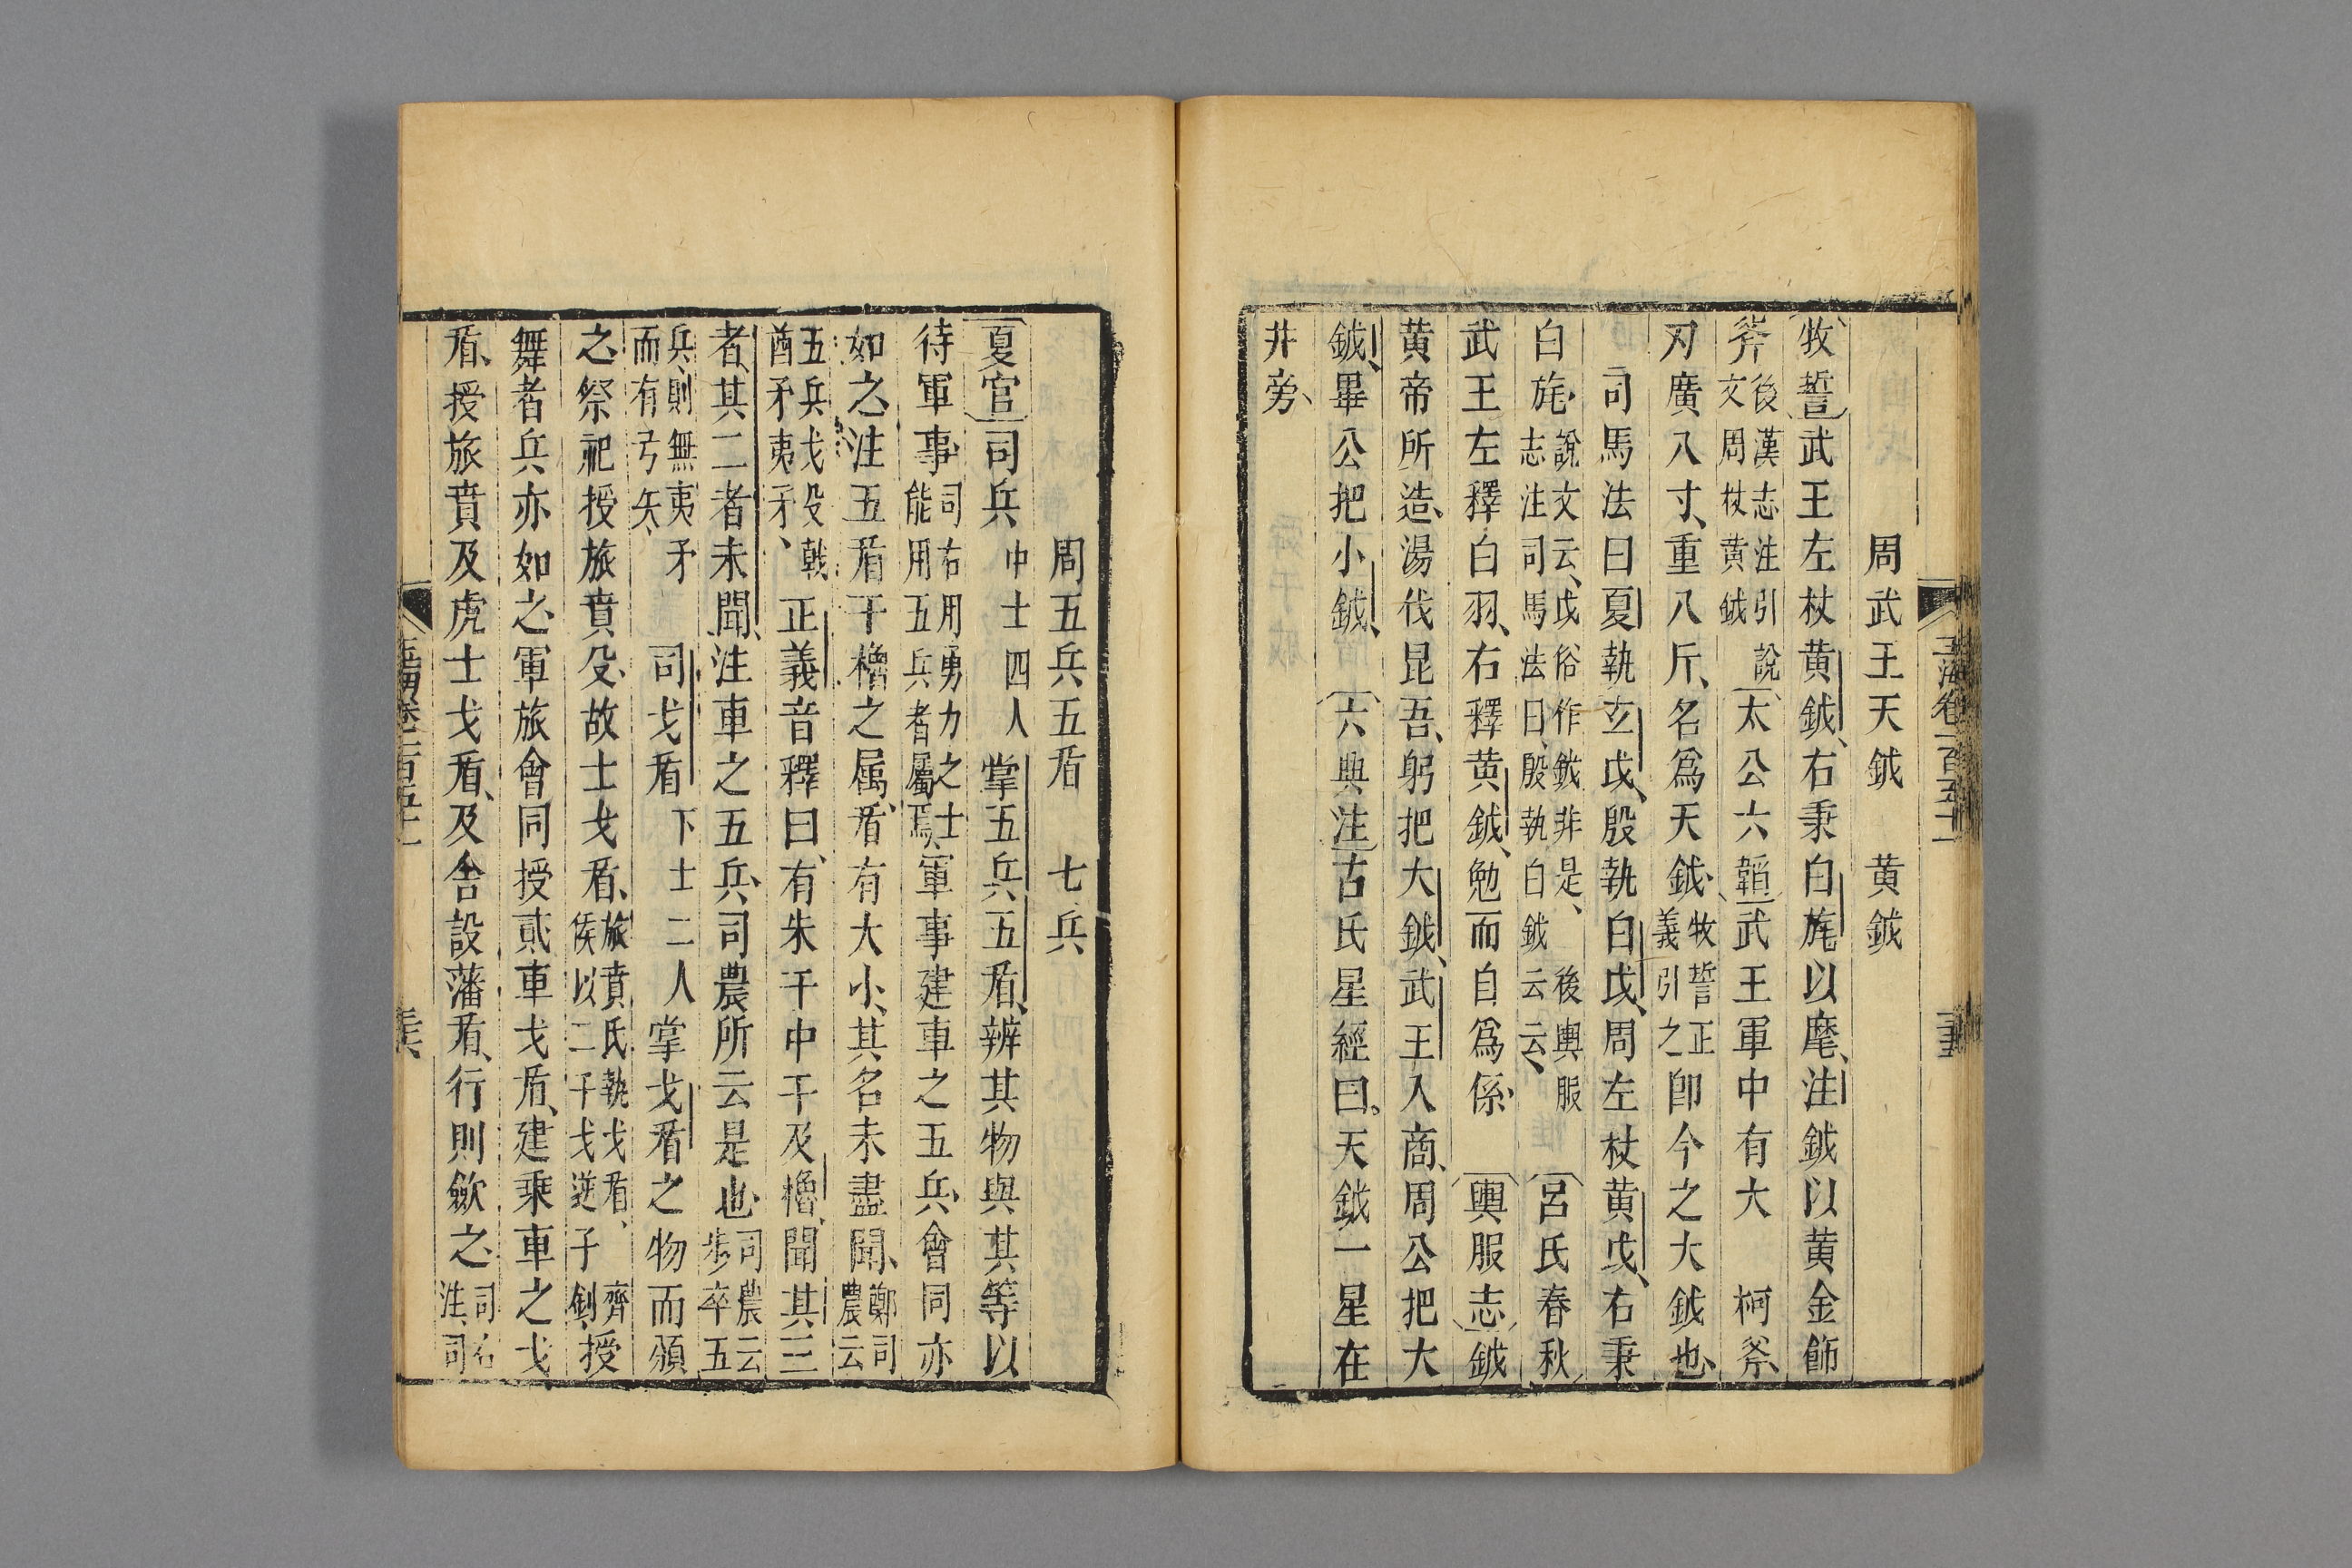 周武王天鉞　黄鉞
牧誓武王左杖黄鉞右秉白旄以麾注鉞以黄金飾
斧後漢志注引說文周杖黄鉞太公六韜武王軍中有大柯斧
刃廣八寸重八斤名爲天鉞牧誓正義引之卽今之大鉞也
司馬法曰夏執玄戉殷執白戉周左杖黄戉右秉
白旄說文云戉俗作鉞非是後輿服志注司馬法曰殷執白鉞云云呂氏春秋
武王左釋白羽右釋黄鉞勉而自爲係輿服志鉞
黄帝所造湯伐昆吾躬把大鉞武王入商周公把大
鉞畢公把小鉞六典注古氏星經曰天鉞一星在
井旁
周五兵五盾　七兵
夏官司兵中士四人掌五兵五盾辨其物與其等以
待軍事司右用勇力之士能用五兵者屬焉軍事建車之五兵會同亦
如之注五盾干櫓之属盾有大小其名未盡聞鄭司農云
五兵戈殳戟酋矛夷矛正義音釋曰有朱干中干及櫓聞其三
者其二者未聞注車之五兵司農所云是也司農云步卒五
兵則無夷矛而有弓矢司戈盾下士二人掌戈盾之物而頒
之祭祀授旅賁殳故士戈盾旅賁氏執戈盾侯以二干戈逆子齊釗授
舞者兵亦如之軍旅會同授貳車戈盾建乘車之戈
盾授旅賁及虎士戈盾及舍設藩盾行則斂之司右注司